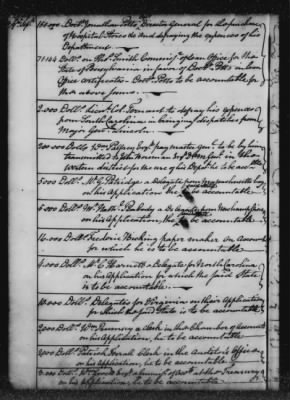 150,000 Doctr. Jonathan Potts, Director General for the purchase
of Hospital Stores &c and defraying the expences of his
Department
71144 Dollrs. on Thos. Smith Commissr. of Loan Office for the
State of Pennsylvania in favor of Doctr. Potts in Loan
Office certificates. Doctr. Potts to be accountable for
the above sums.
2,000 Dollrs. Lieut. Col. Ternant to defray his expences
from South Carolina in bringing dispatches from
Major Genl. Lincoln.
200,000 Dollrs Wm. Palfrey Esqr. pay master genl. to be by him
transmitted to
western district for the use of his Depart. he to be accountable
5,000 Dollrs. Mr. G. Partridge a delegate from Massachusetts bay
on his application he to be accountable.
5,000 Dollrs. Mr. Nathl. Peabody a delegate from New hampshire
on his application, the to be accountable.
10,000 Dollrs. Frederic Bicking paper maker on account
for which he is to be accountable.
4,000 Dollrs. Mr. C. Harnett a Delegate for North Carolina
on his application for which the said State
is to be accountable.
10,000 Dollrs. Delegates for Virginia on their application
for which the said State is to be accountable.
2,000 Dollrs. Wm. a Clerk in the Chamber of Accounts
on his application, he to be accountable.
2,000 Dollrs. Patrick Clerk in the Auditors Office
on his application, he to be accountable.
3,000 Dollrs. Wm. of the Treasury
on his application; he to be accountable